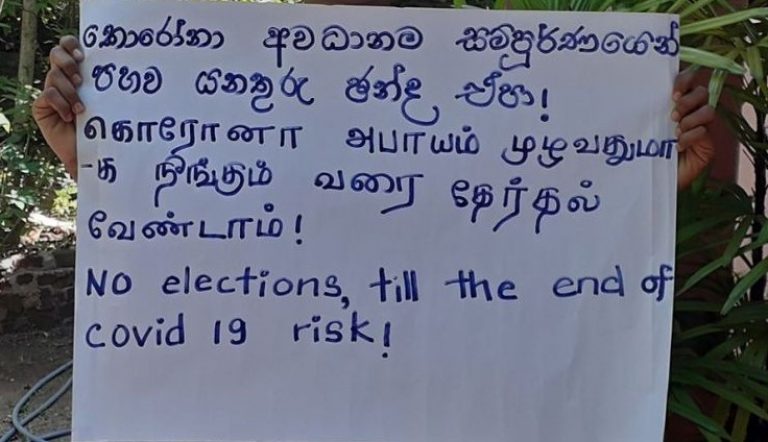 කොරෝනා අවධානම සම්පූර්ණයෙන්
පහව යනතුරු ඡන්ද එපා!
கொரோனா அபாயம் முழுவதுமா
-க நீங்கும் வரை தேர்தல்
வேண்டாம்!
No elections, till the end of
covid 19 risk!